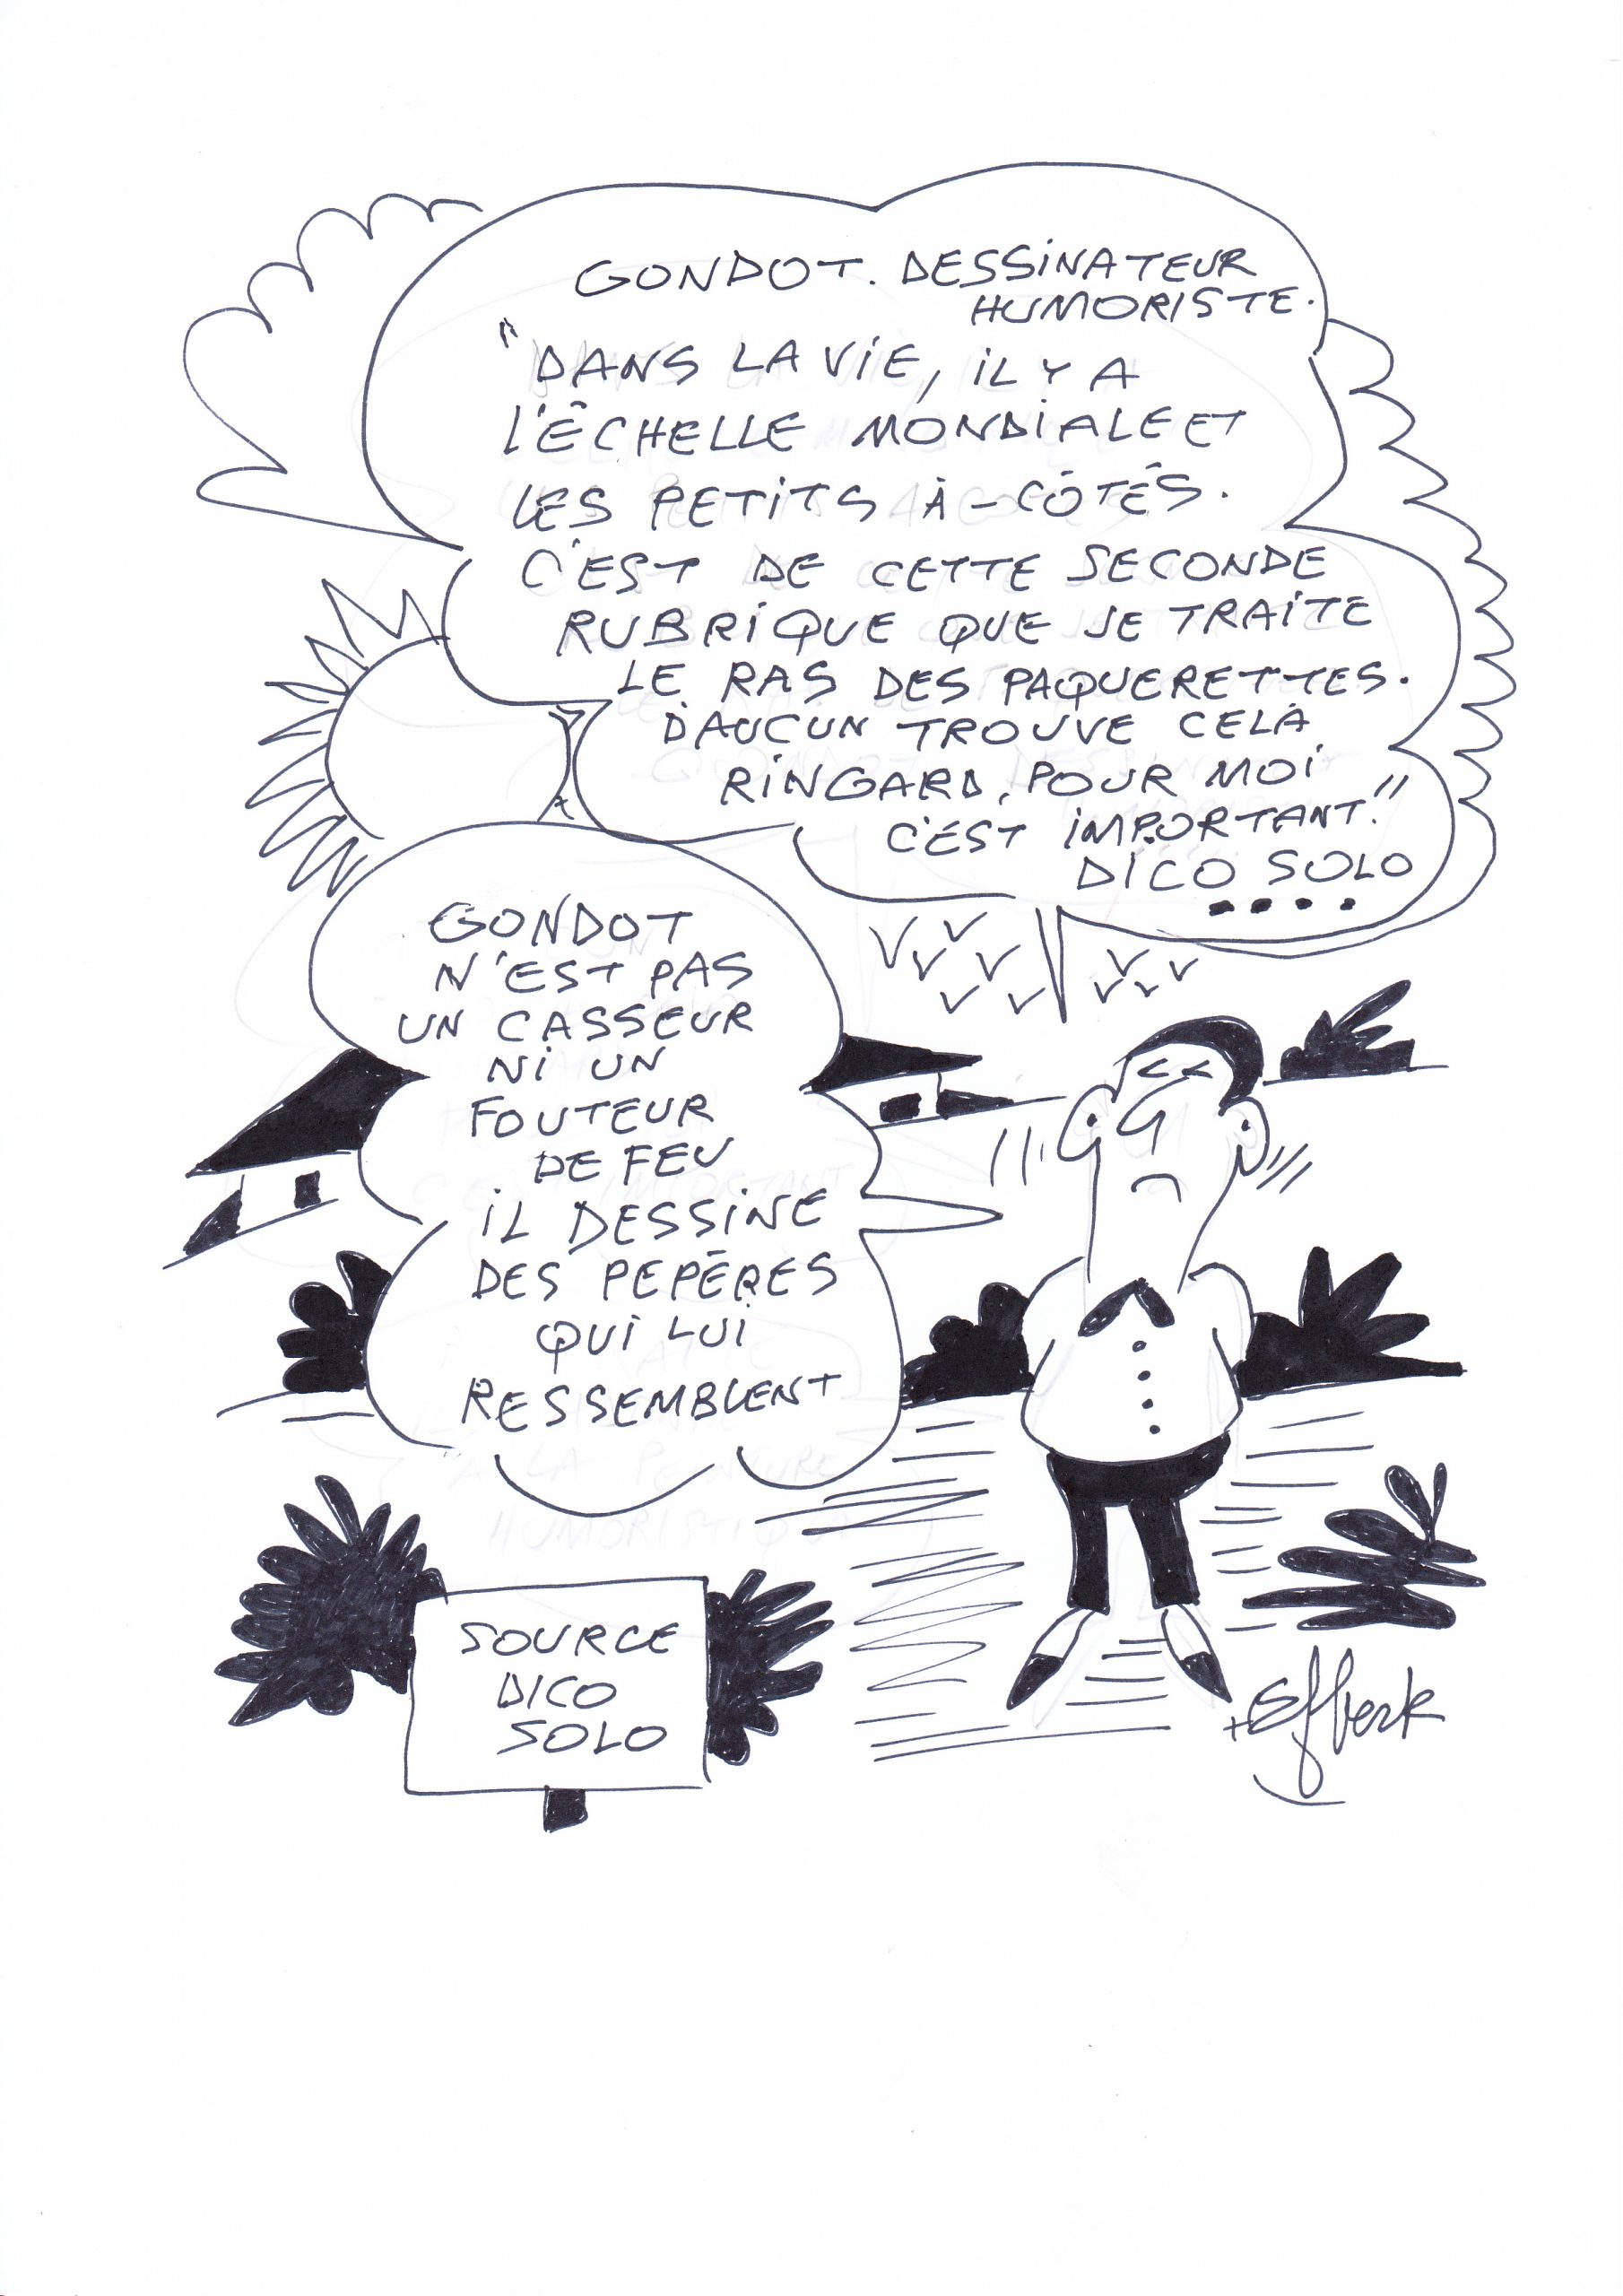 GONDOT. DESSINATEUR
HUMORISTE.
"DANS LA VIE, IL Y A
L'ÉCHELLE MONDIALE ET
LES PETITS À-CÔTÉS.
C'EST DE CETTE SECONDE
RUBRIQUE QUE JE TRAITE
LE RAS DES PAQUERETTES.
D'AUCUN TROUVE CELÀ
RINGARD, POUR MOI
C'EST IMPORTANT."
DICO SOLO
....
GONDOT
N'EST PAS
UN CASSEUR
NI UN
FOUTEUR
DE FEU
IL DESSINE
DES PEPÈRES
QUI LUI
RESSEMBLENT
SOURCE
DICO
SOLO